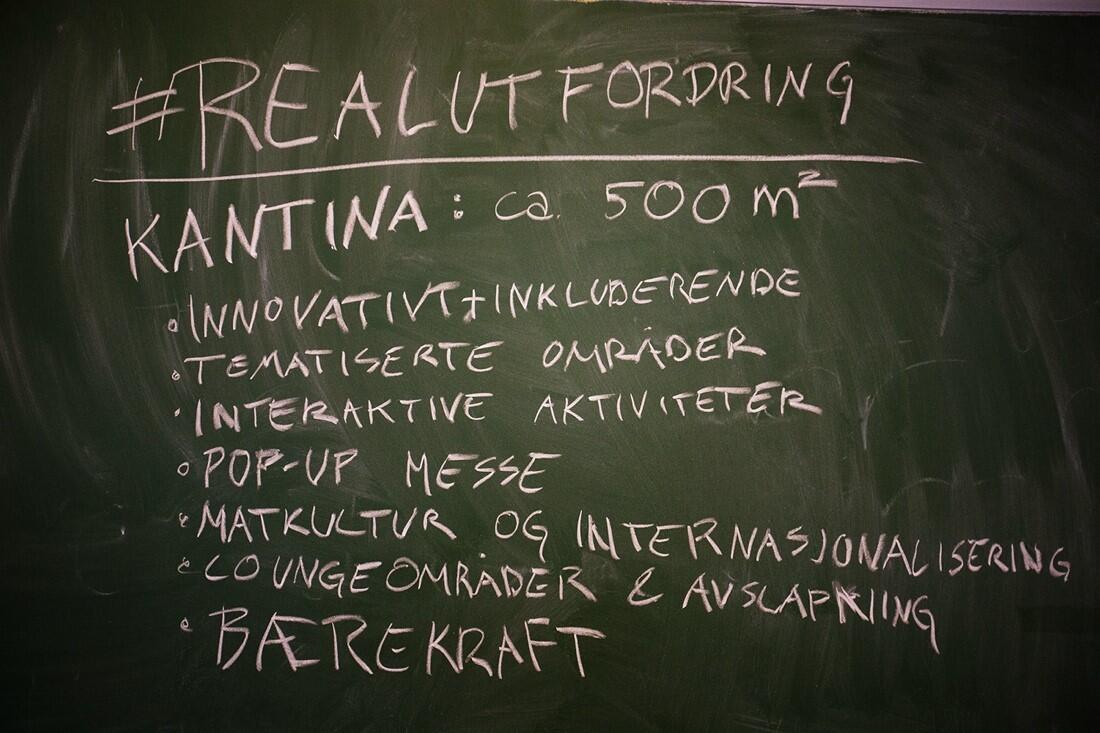 #REALUTFORDRING
KANTINA: ca. 500 m²
• INNOVATIVT + INKLUDERENDE
• TEMATISERTE OMRÅDER
• INTERAKTIVE AKTIVITETER
• POP-UP MESSE
• MATKULTUR OG INTERNASJONALISERING
• LOUNGEOMRÅDER & AVSLAPNING
• BÆREKRAFT